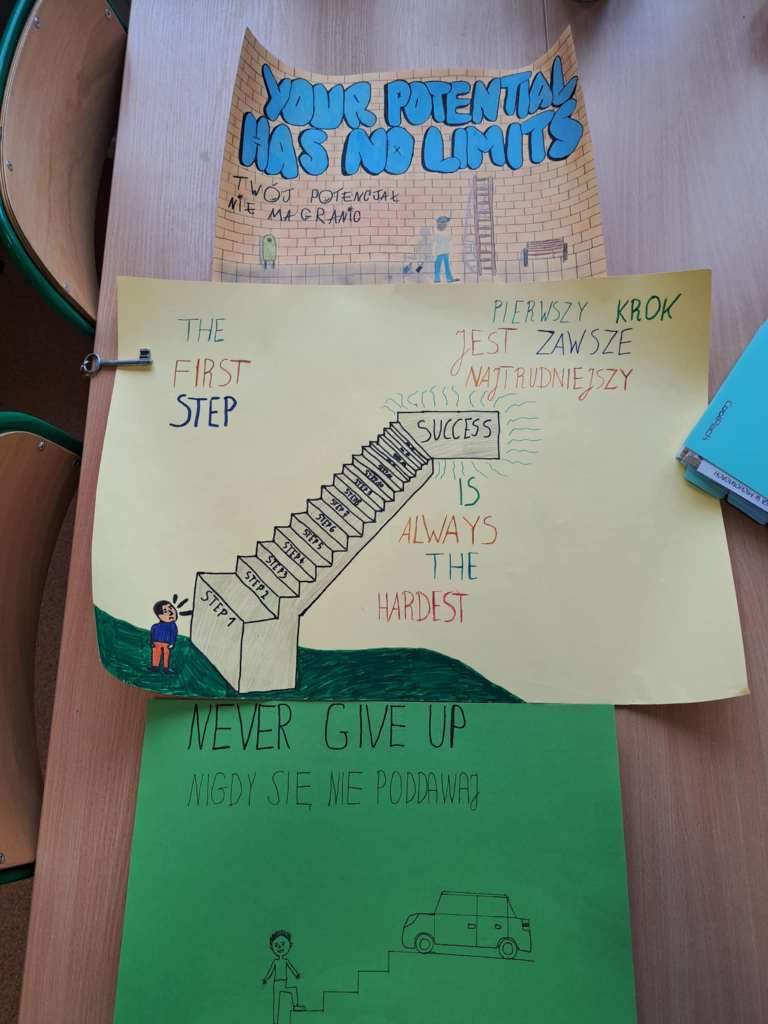 YOUR POTENTIAL
HAS NO LIMITS
TWÓJ POTENCJAŁ
NIE MA GRANIC
THE
FIRST
STEP
PIERWSZY KROK
JEST ZAWSZE
NAJTRUDNIEJSZY
SUCCESS
IS
ALWAYS
THE
HARDEST
STEP 1
STEP 2
STEP 3
STEP 4
STEP 5
STEP 6
STEP 7
NEVER GIVE UP
NIGDY SIĘ NIE PODDAWAJ